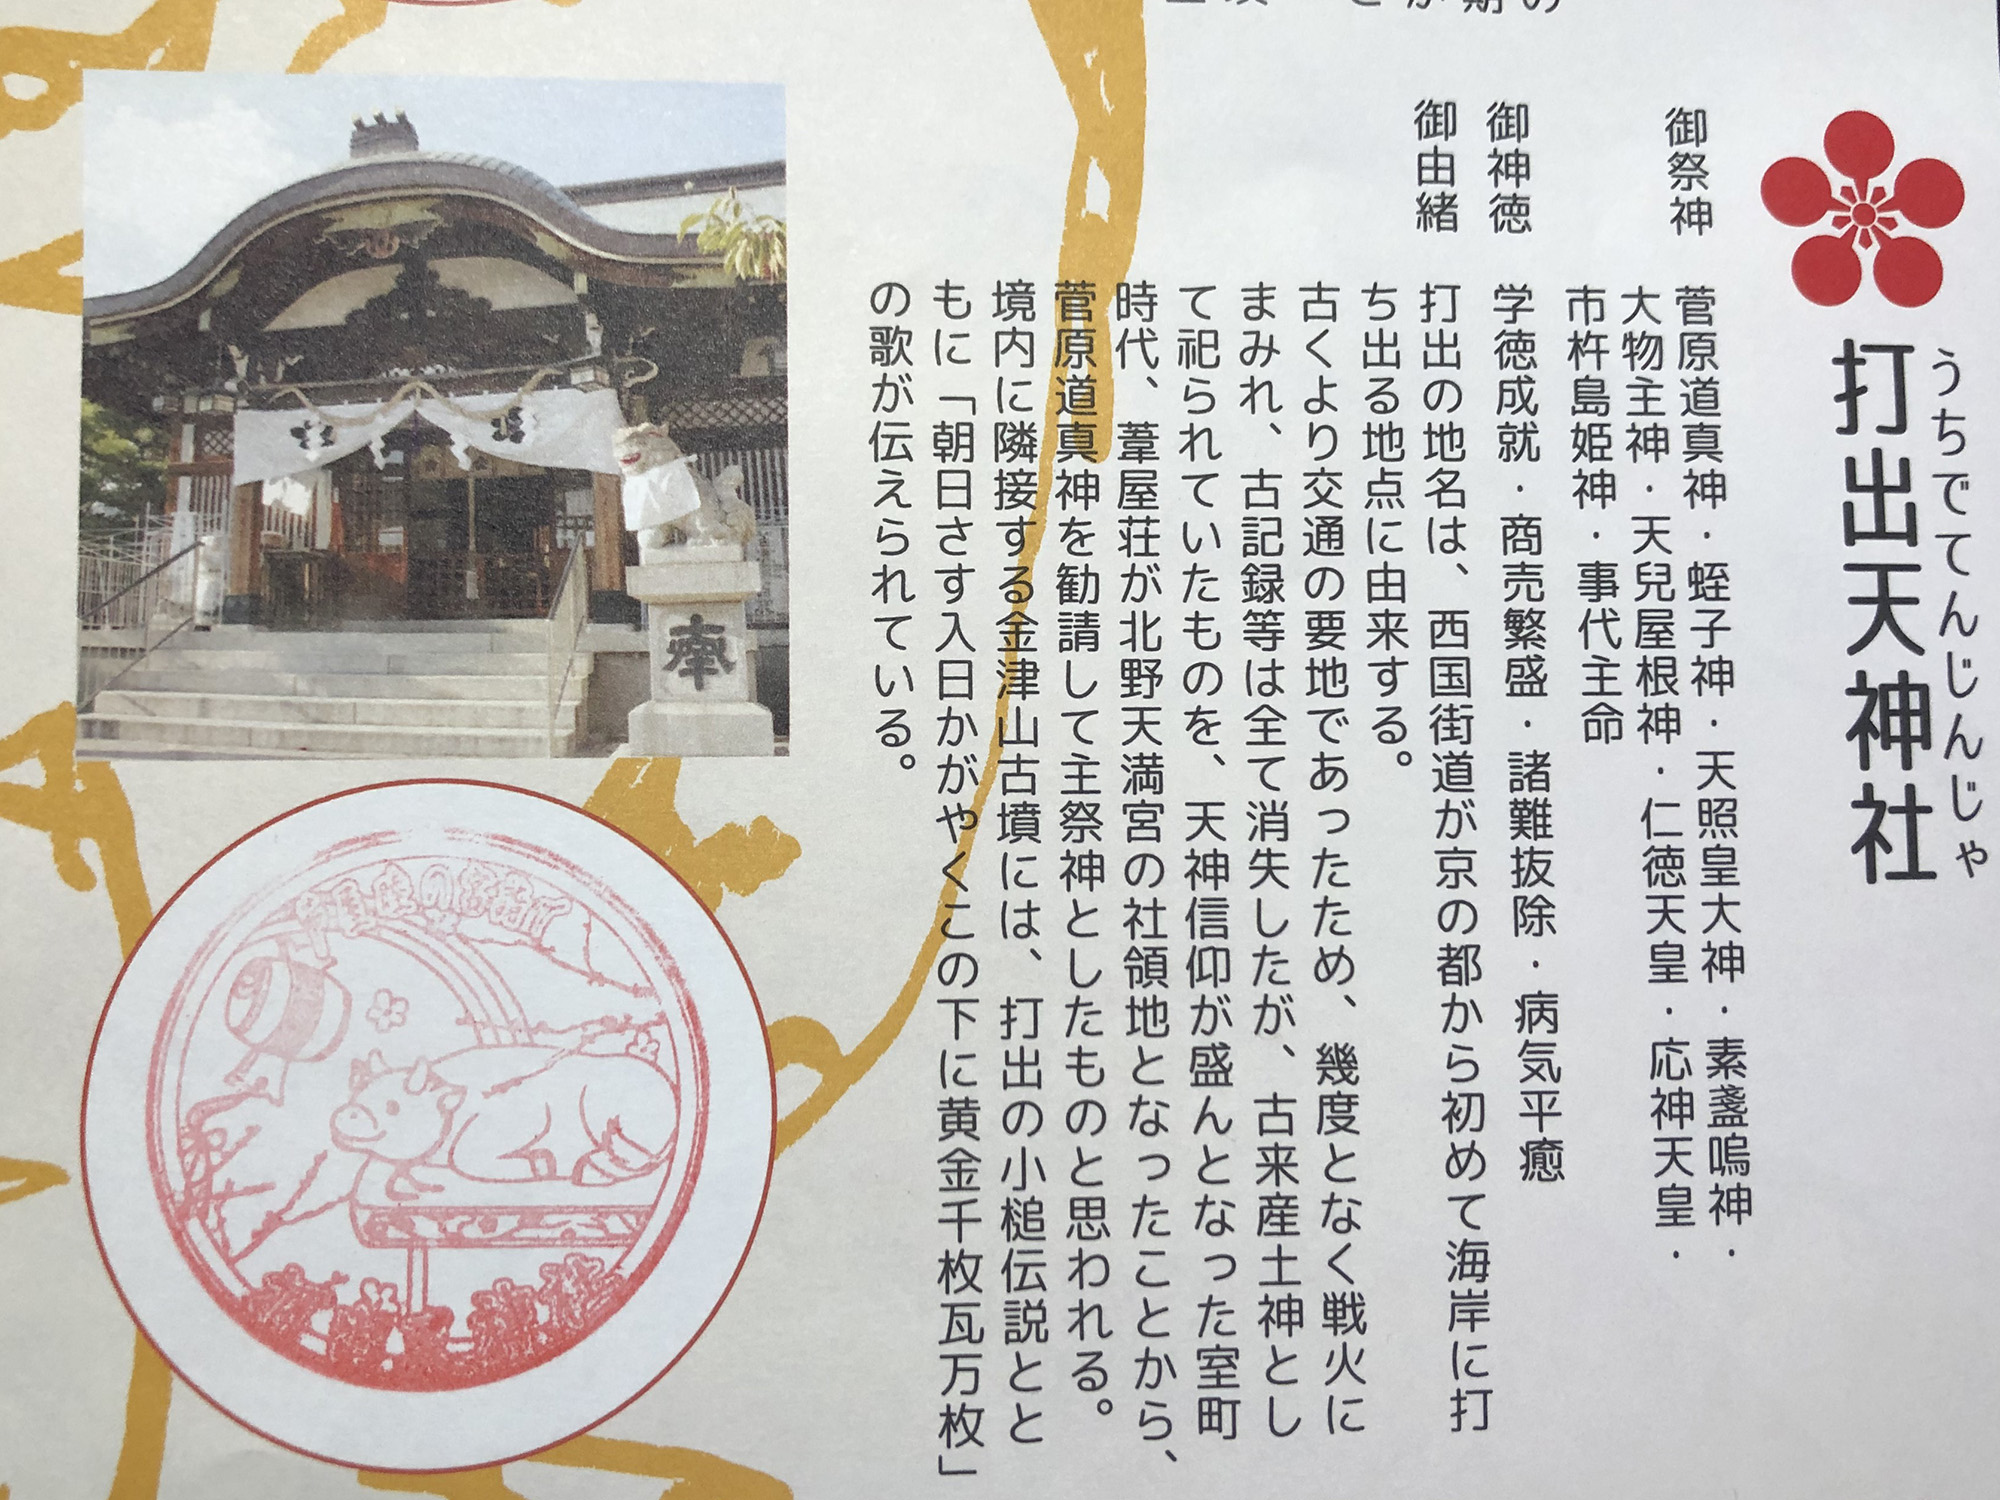 打出天神社
うちでてんじんじゃ
御祭神
菅原道真神・蛭子神・天照皇大神・素盞嗚神・
大物主神・天兒屋根神・仁徳天皇・応神天皇・
市杵島姫神・事代主命
御神徳
学徳成就・商売繁盛・諸難抜除・病気平癒
御由緒
打出の地名は、西国街道が京の都から初めて海岸に打
ち出る地点に由来する。
古くより交通の要地であったため、幾度となく戦火に
まみれ、古記録等は全て消失したが、古来産土神とし
て祀られていたものを、天神信仰が盛んとなった室町
時代、葦屋荘が北野天満宮の社領地となったことから、
菅原道真神を勧請して主祭神としたものと思われる。
境内に隣接する金津山古墳には、打出の小槌伝説とと
もに「朝日さす入日かがやくこの下に黄金千枚瓦万枚」
の歌が伝えられている。
奉